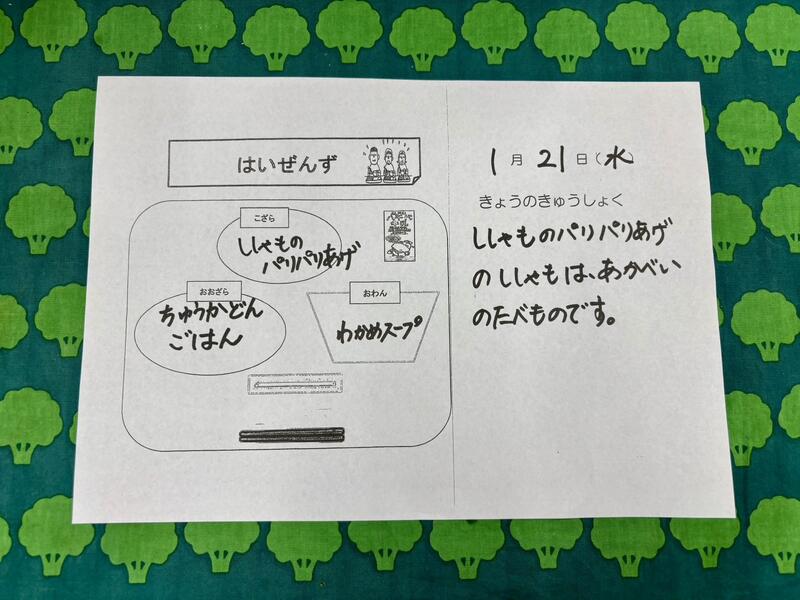 はいぜんず
こざら
ししゃもの
パリパリあげ
おおざら
ちゅうかどん
ごはん
おわん
わかめスープ
1月21日(水
きょうのきゅうしょく
ししゃものパリパリあげ
のししゃもは、あかべい
のたべものです。